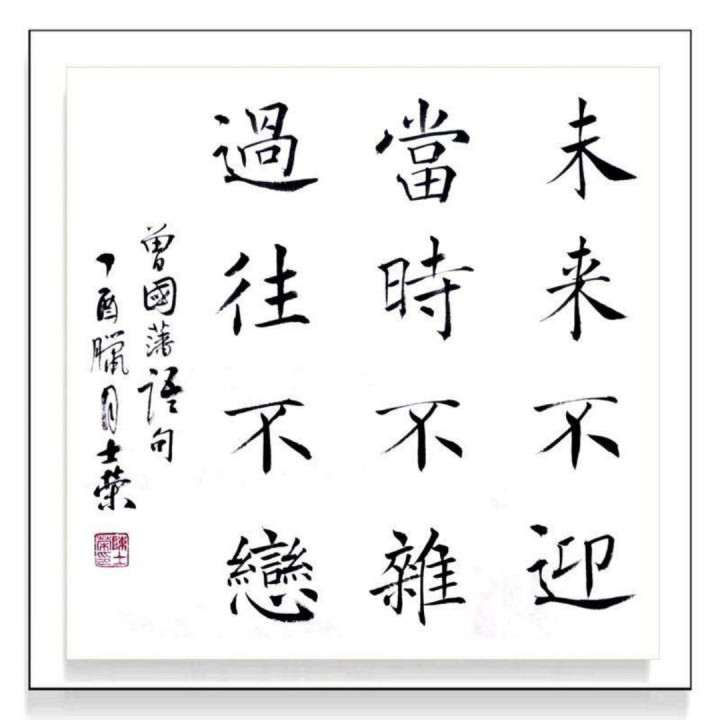 未来不迎
當時不雜
過往不戀
曾國藩語句
丁酉臘月士榮
陳士榮印